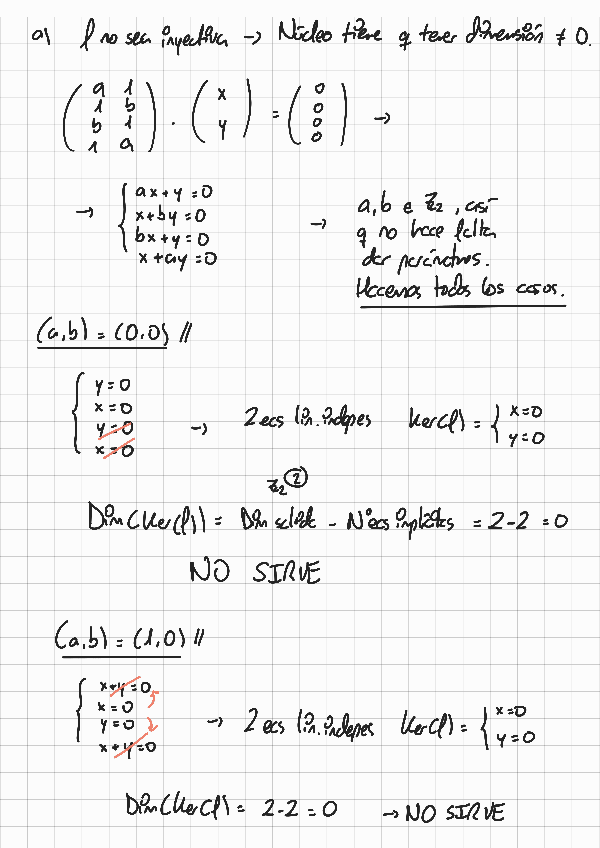 a) f no sea inyectiva → Núcleo tiene q tener dimensión ≠ 0.
( a 1 ) ( x ) ( 0 )
( 1 b ) · ( y ) = ( 0 ) →
( b 1 ) ( 0 )
( 1 a ) ( 0 )
→ { ax + y = 0
x + by = 0
bx + y = 0
x + ay = 0
→ a, b ∈ ℤ₂, así
q no hace falta
dar parámetros.
Hacemos todos los casos.
(a,b) = (0,0) //
{ y = 0
x = 0
y = 0
x = 0
→ 2 ecs lin. indeps Ker(f) = { x = 0
y = 0
ℤ₂②
Dim(Ker(f)) = Dim - Nº ecs = 2 - 2 = 0
NO SIRVE
(a,b) = (1,0) //
{ x + y = 0
x = 0
y = 0
x + y = 0
→ 2 ecs lin. indepes Ker(f) = { x = 0
y = 0
Dim(Ker(f)) = 2 - 2 = 0 → NO SIRVE